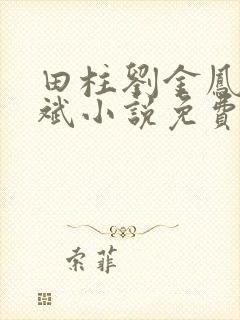 田柱劉金鳳
斌小說免費
索菲